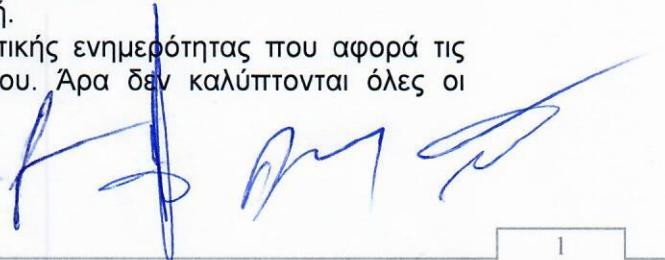 ή.
τικής ενημερότητας που αφορά τις
ου. Άρα δεν καλύπτονται όλες οι
1